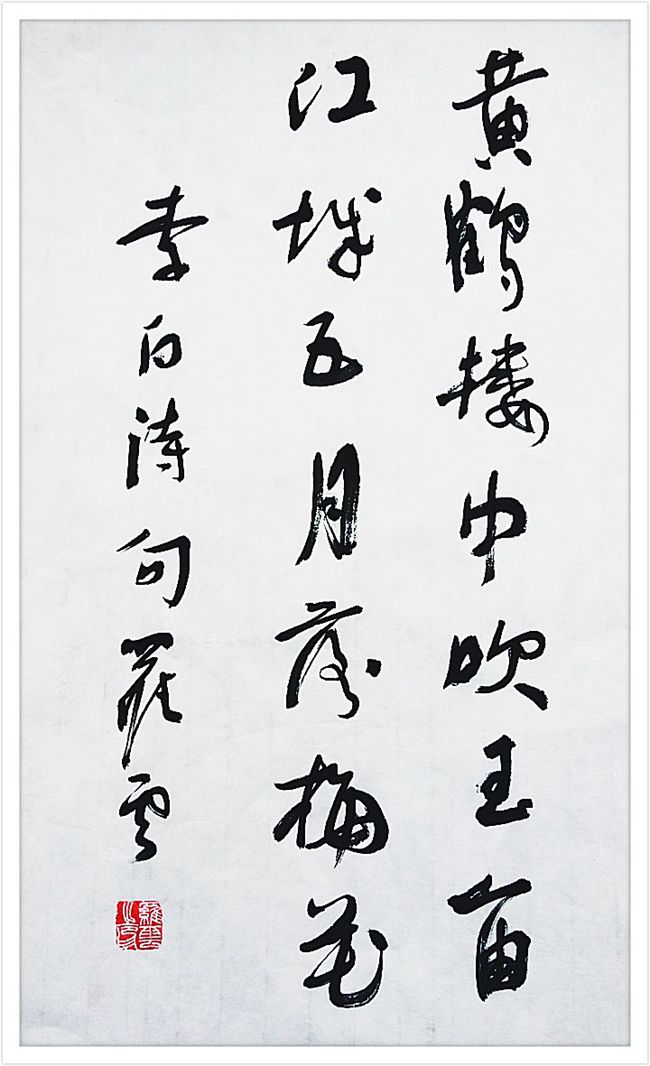 黄鶴楼中吹玉笛
江城五月落梅花
李白詩句羅雲